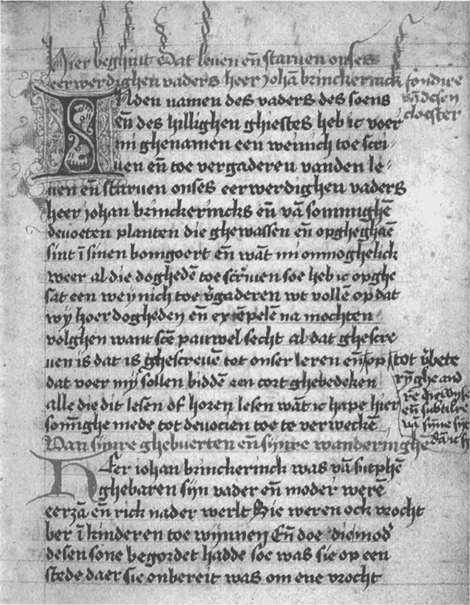 Hier beghint dat leuen eñ staruen onses
eerwerdighen vaders heer johã brinckerinck
fondire
vã desen
cloester
INden namen des vaders des soens
eñ des hillighen ghiestes heb ic voer
mi ghenamen een weinich toe scri-
uen eñ toe vergaderen vanden le-
uen eñ staruen onses eerwerdighen vaders
heer johan brinckerincks eñ vã sommighẽ
deuoeten planten die ghewassen eñ opgheghaẽ
sint ĩ sinen bomgoert eñ wãt mi onmoghelick
weer al die doghedẽ toe scriuen soe heb ic opghe
sat een weynich toe vgaderen wt vollẽ op dat
wy hoer doghden eñ exẽpelẽ na mochten
volghen want scẽ pauwel secht al dat ghescre
uen is dat is ghescreuẽ tot onser leren eñ
tot
dat voer mij sollen biddẽ een cort ghebedeken
alle die dit lesen of horen lesen wãt ic hape hier
sõmighe mede tot deuocien toe te verweckẽ
Van sijnre ghebuerten eñ sijnre wanderinghe
HEer iohan brinckerinck was vã sutphẽ
ghebaren sijn vader eñ moder werẽ
eerzã eñ rick nader werlt Sie weren ock vrocht
ber ĩ kinderen toe wynnen Eñ doe die mod
desen sone begordet hadde soe was sie op een
stede daer sie onbereit was om ene vrocht